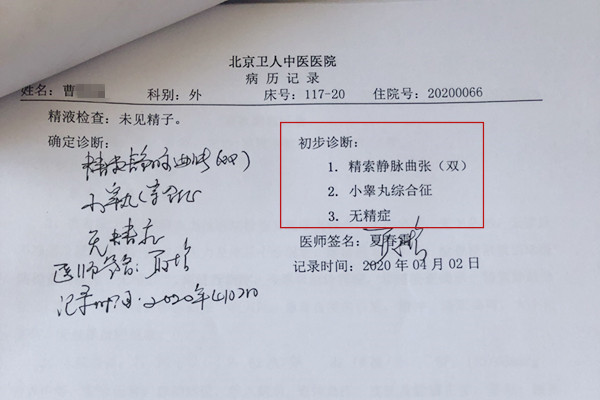 北京卫人中医医院
病历记录
姓名：曹 科别：外 床号：117-20 住院号：20200066
精液检查：未见精子。
确定诊断：
精索静脉曲张(双)
小睾丸综合征
无精症
医师签名：
记录时间：2020年4月2日
初步诊断：
1. 精索静脉曲张（双）
2. 小睾丸综合征
3. 无精症
医师签名：夏春
记录时间：2020 年 04 月 02 日